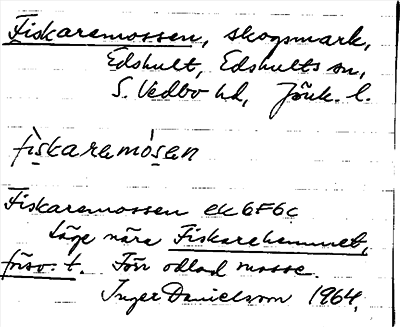 Fiskaremossen, skogsmark,
Edshult, Edshults sn,
S. Vedbo hd, Jönk. l.
fìskaremósen
Fiskaremossen ek 6F6c
Läge nära Fiskarehemmet,
försv. t. Förr odlad mosse.
Inger Danielsson 1964.